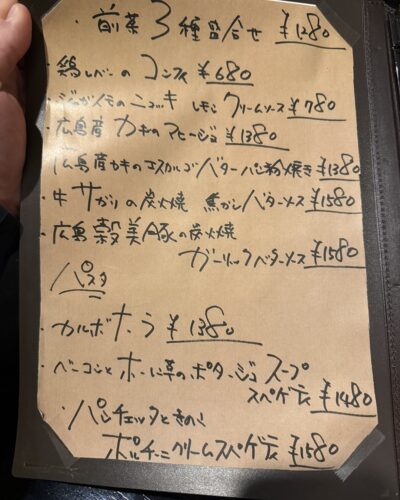 ・前菜3種盛合せ ¥1280
・鶏レバーのコンフィ ¥680
・ジャガイモのニョッキ レモンクリームソース ¥780
・広島産カキのアヒージョ ¥1380
・広島産カキのエスカルゴバターパン粉焼き ¥1380
・牛サガリの炭火焼 焦がしバターソース ¥1580
・広島穀美豚の炭火焼
ガーリックバターソース ¥1580
パスタ
・カルボナーラ ¥1380
・ベーコンとホーレン草のポタージュスープ
スパゲティ ¥1480
・パンチェッタときのこ
ポルチーニクリームスパゲティ ¥1580